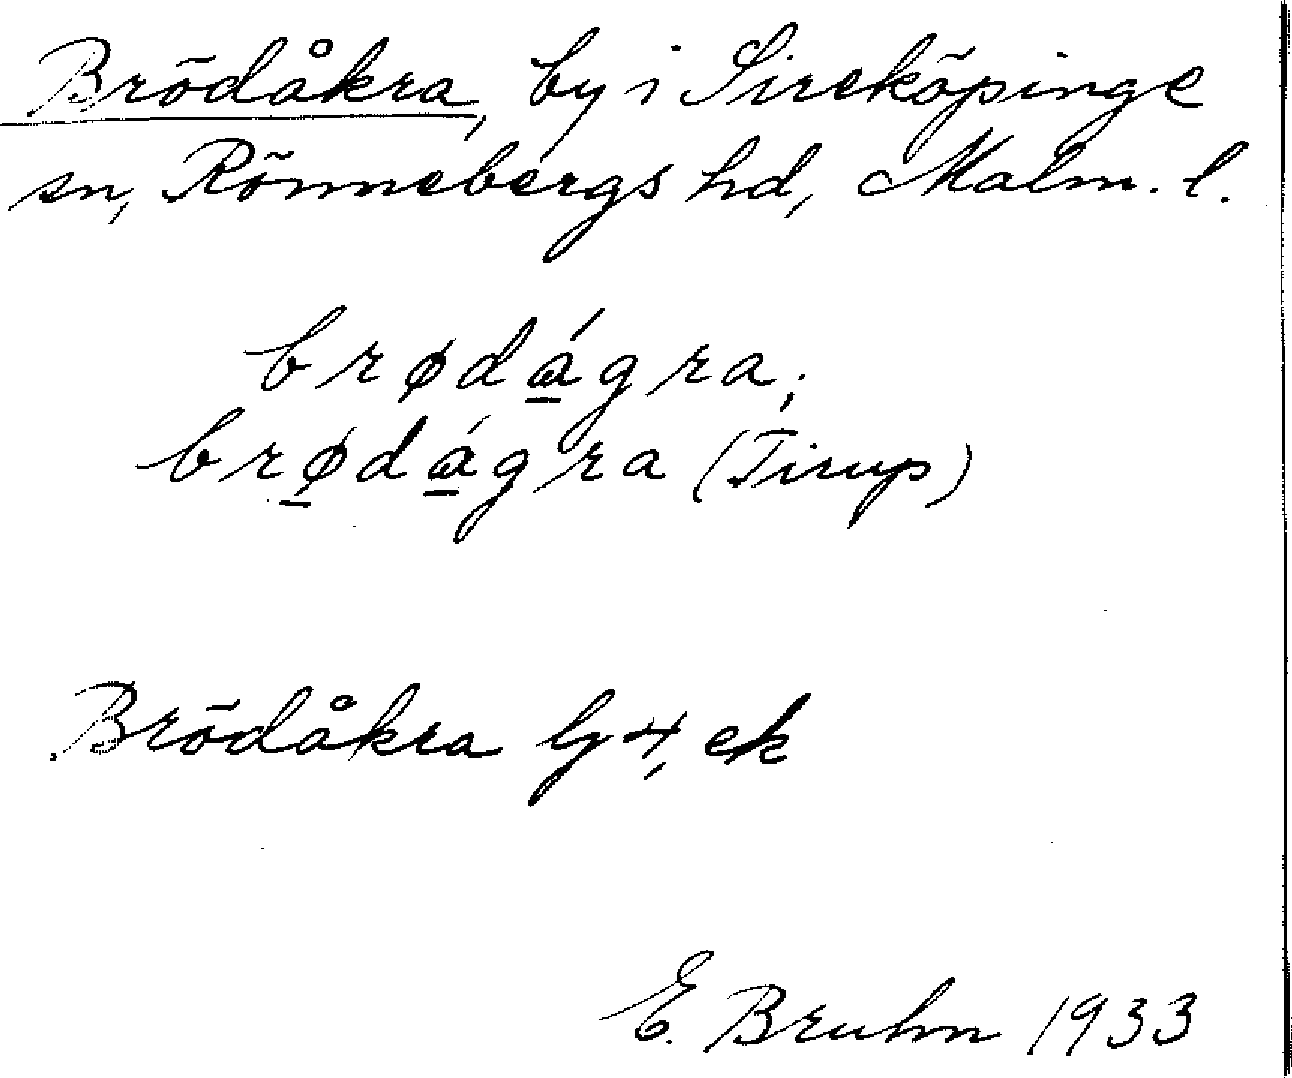 Brödåkra, by i Sireköpinge
sn, Rönnebergs hd, Malm. l.
brødá̱gra;
brø̱dá̱gra (Tirup)
Brödåkra by 4, ek
E. Bruhn 1933